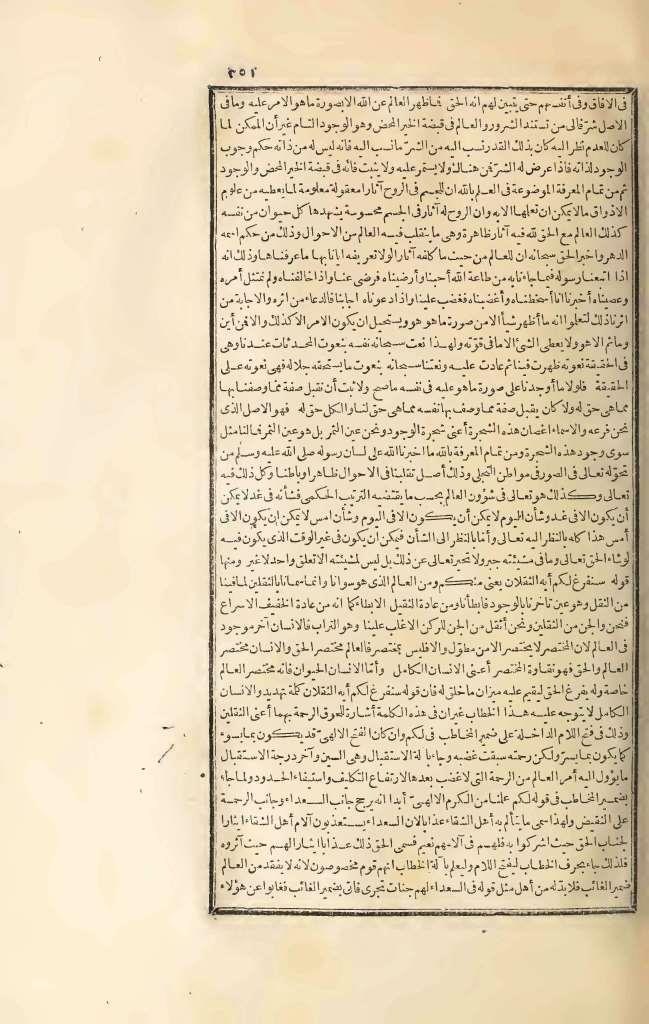 ٣٥١
فى الآفاق وفى أنفسهم حتى يتبين لهم انه الحق فما ظهر العالم عن الله الا بصورة ما هو الامر عليه وما فى
الاصل شر فالى من تستند الشرور والعالم فى قبضة الخير المحض وهو الوجود التام غير أن الممكن لما
كان للعدم نظر اليه كان بذلك القدر ينسب اليه من الشر ما نسب اليه فانه ليس له من ذاته حكم وجوب
الوجود لذاته فاذا عرض له الشر فن هنالك ولا يستمر عليه ولا يثبت فانه فى قبضة الخير المحض والوجود
ثم من تمام المعرفة الموضوعة فى العلم بالله ان للجسم فى الروح آثارا معقولة معلومة لما يعطيه من علوم
الاذواق ما لا يمكن ان تعلمها الا به وان الروح له آثار فى الجسم محسوسة يشهدها كل حيوان من نفسه
كذلك العالم مع الحق لله فيه آثار ظاهرة وهى ما يتقلب فيه العالم من الاحوال وذلك من حكم اسمه
الدهر واخبر الحق سبحانه ان للعالم من حيث ما كلفه آثارا لولا تعريفه ايانا بها ما عرفناها وذلك انه
اذا اتبعنا رسوله فيما جاءنا به من طاعة الله أحبنا وأرضيناه فرضى عنا واذا خالفناه ولم نمتثل أمره
وعصيناه أخبرنا انا أسخطناه وأغضبناه فغضب علينا واذا دعوناه اجابنا فالدعاء من اثره والاجابة من
اثرنا ذلك لتعلموا انه ما أظهر شيأ الا من صورة ما هو هو ويستحيل ان يكون الامر الا كذلك والا فن أين
وما ثم الا هو ولا يعطى الشئ الا ما فى قوته ولهذا نعت سبحانه نفسه بنعوت المحدثات عندنا وهى
فى الحقيقة نعوته ظهرت فينا ثم عادت عليه ونعتنا سبحانه بنعوت ما يستحقه جلاله فهى نعوته على
الحقيقة فلولا ما أوجدنا على صورة ما هو عليه فى نفسه ما صح ولا ثبت أن نقبل صفة مما وصفنا بها
مما هى حق له ولا كان يقبل صفة مما وصف بها نفسه مما هى حق لنا والكل حق له فهو الاصل الذى
نحن فرعه والاسماء اغصان هذه الشجرة أعنى شجرة الوجود ونحن عين الثمر بل هو عين الثمر فما لنا مثل
سوى وجود هذه الشجرة ومن تمام المعرفة بالله ما اخبرنا الله على لسان رسوله صلى الله عليه وسلم من
تحوله تعالى فى الصور فى مواطن التجلى وذلك أصل تقلبنا فى الاحوال ظاهرا وباطنا وكل ذلك فيه
تعالى وكذلك هو تعالى فى شؤون العالم بحسب ما يقتضيه الترتيب الحكمى فشأنه فى غد لا يمكن
أن يكون الا فى غد وشأن اليوم لا يمكن أن يكون الا فى اليوم وشأن امس لا يمكن ان يكون الا فى
أمس هذا كله بالنظر اليه تعالى وأما بالنظر الى الشأن فيمكن ان يكون فى غير الوقت الذى يكون فيه
لو شاء الحق تعالى وما فى مشيئته جبر ولا تحير تعالى عن ذلك بل ليس لمشيئته الا تعلق واحد لا غير ومنها
قوله سنفرغ لكم أيه الثقلان يعنى منكم ومن العالم الذى هو سوانا وانما سمانا بالثقلين لما فينا
من الثقل وهو عين تأخرنا بالوجود فابطأنا ومن عادة الثقيل الابطاء كما انه من عادة الخفيف الاسراع
فنحن والجن من الثقلين ونحن أثقل من الجن للركن الاغلب علينا وهو التراب فالانسان آخر موجود
فى العالم لان المختصر لا يختصر الا من مطول والا فليس بمختصر فالعالم مختصر الحق والانسان مختصر
العالم والحق فهو نقاوة المختصر أعنى الانسان الكامل وأما الانسان الحيوان فانه مختصر العالم
خاصة وله يفرغ الحق ليقيم عليه ميزان ما خلق له فان قوله سنفرغ لكم أيه الثقلان كلمة تهديد والانسان
الكامل لا يتوجه عليه هذا الخطاب غير ان فى هذه الكلمة اشارة للحوق الرحمة بهما أعنى الثقلين
وذلك فى فتح اللام الداخلة على ضمير المخاطب فى لكم وان كان الفتح الالهى قد يكون بما يسوء
كما يكون بما يسر ولكن رحمته سبقت غضبه وجاء بآلة الاستقبال وهى السين وآخر درجة الاستقبال
ما يؤول اليه أمر العالم من الرحمة التى لا غضب بعدها لارتفاع التكليف واستيفاء الحدود ولما جاء
بضمير المخاطب فى قوله لكم علمنا من الكرم الالهى أبدا انه يرجح جانب السعداء وجانب الرحمة
على النقيض ولهذا سمى ما يتألم به أهل الشقاء عذابا لان السعداء يستعذبون آلام أهل الشقاء ايثارا
لجناب الحق حيث اشركوا به فلهم فى آلامهم نعيم فسمى الحق ذلك عذابا ايثارا لهم حيث آثروه
فلذلك جاء بحرف الخطاب ليفتح اللام وليعلم بآلة الخطاب انهم قوم مخصوصون لانه لا يفقد من العالم
ضمير الغائب فلا بد له من أهل مثل قوله فى السعداء لهم جنات تجرى فاتى بضمير الغائب فغابوا عن هؤلاء